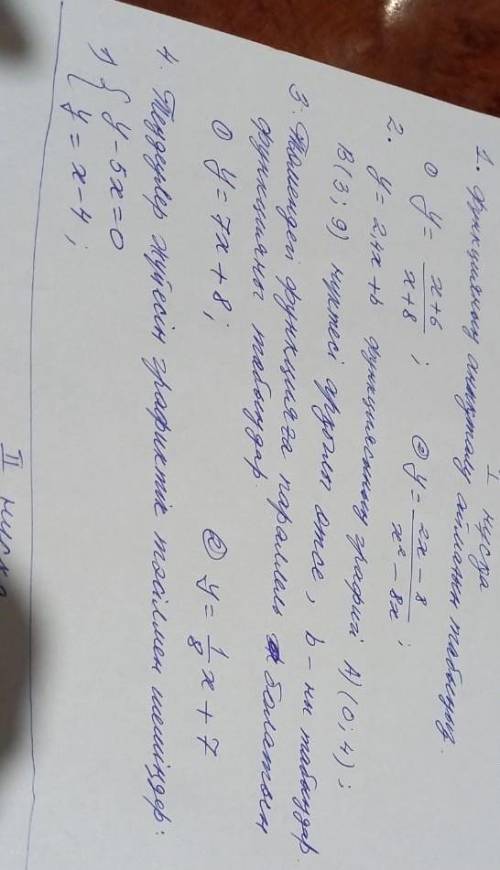 I нұсқа
1. Функцияның анықталу аймағын табыңыз.
① y = x+6/x+8 ; ② y = 2x-8/x²-8x ;
2. y = 24x+b функциясының графигі A)(0;4);
B(3;9) нүктесі арқылы өтсе, b-ны табыңдар.
3. Төмендегі функцияға параллель болатын
функцияны табыңдар
① y = 7x+8; ② y = 1/8 x + 7
4. Теңдеулер жүйесін графиктік тәсілмен шешіңдер:
1) { y-5x=0
y = x-4;
II нұсқа